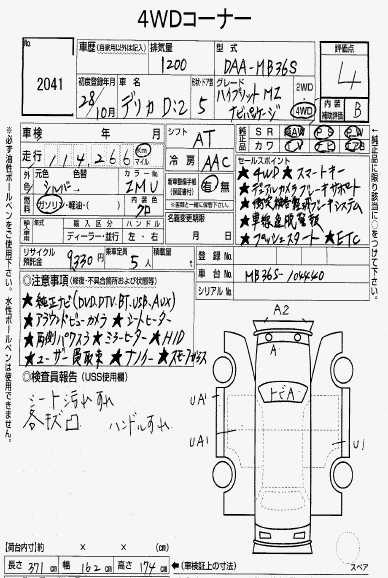 4WDコーナー
No.
2041
車歴 (自家用以外は記入)
排気量
1200
型式
DAA-MB36S
評価点
4
初度登録年月
28/10月
車名
デリカD:2
形状・ドア数
5
グレード
ハイブリッドMZ
ナビパッケージ
2WD
4WD
内装補助評価
B
車検 年 月
シフト
AT
純正品
SR AW PS PW
カワ TV
走行
114,266
Km
マイル
冷房
AAC
セールスポイント
★4WD ★スマートキー
★デュアルカメラブレーキサポート
★車線逸脱警報
★プッシュスタート ★ETC
外色
元色
シルバー
色替
カラーNo.
ZMU
燃料
ガソリン・軽油・( )
内装色
クロ
車歴整備手帳
(保証書付)
有・無
※書類と一緒に保管下さい
輸入車
輸入区分
ディーラー・並行
ハンドル
左・右
名義変更期限
月 日
リサイクル預託金
9,330円
乗車定員
5人
登録No.
車台No.
MB36S-104440
シリアルNo.
◎注意事項 (修復・不具合箇所および状態等)
★純正ナビ(DVD.DTV.BT.USB.AUX)
★アラウンドビューカメラ ★シートヒーター
★両側パワスラ ★ミラーヒーター ★HID
★ユーザー買取車 ★ナノイー
◎検査員報告 (USS使用欄)
シート汚れ
各キズ凹 ハンドルすれ
A2
A
トビA
UA'
UA'
U1
スペア
【荷台内寸】約 × × (cm)
長さ 371 cm 幅 162 cm 高さ 174 cm ←(車検証上の寸法)
※必ず油性ボールペンをご使用下さい。水性ボールペンは使用できません。
←純正品に限り該当に○をつけて下さい。